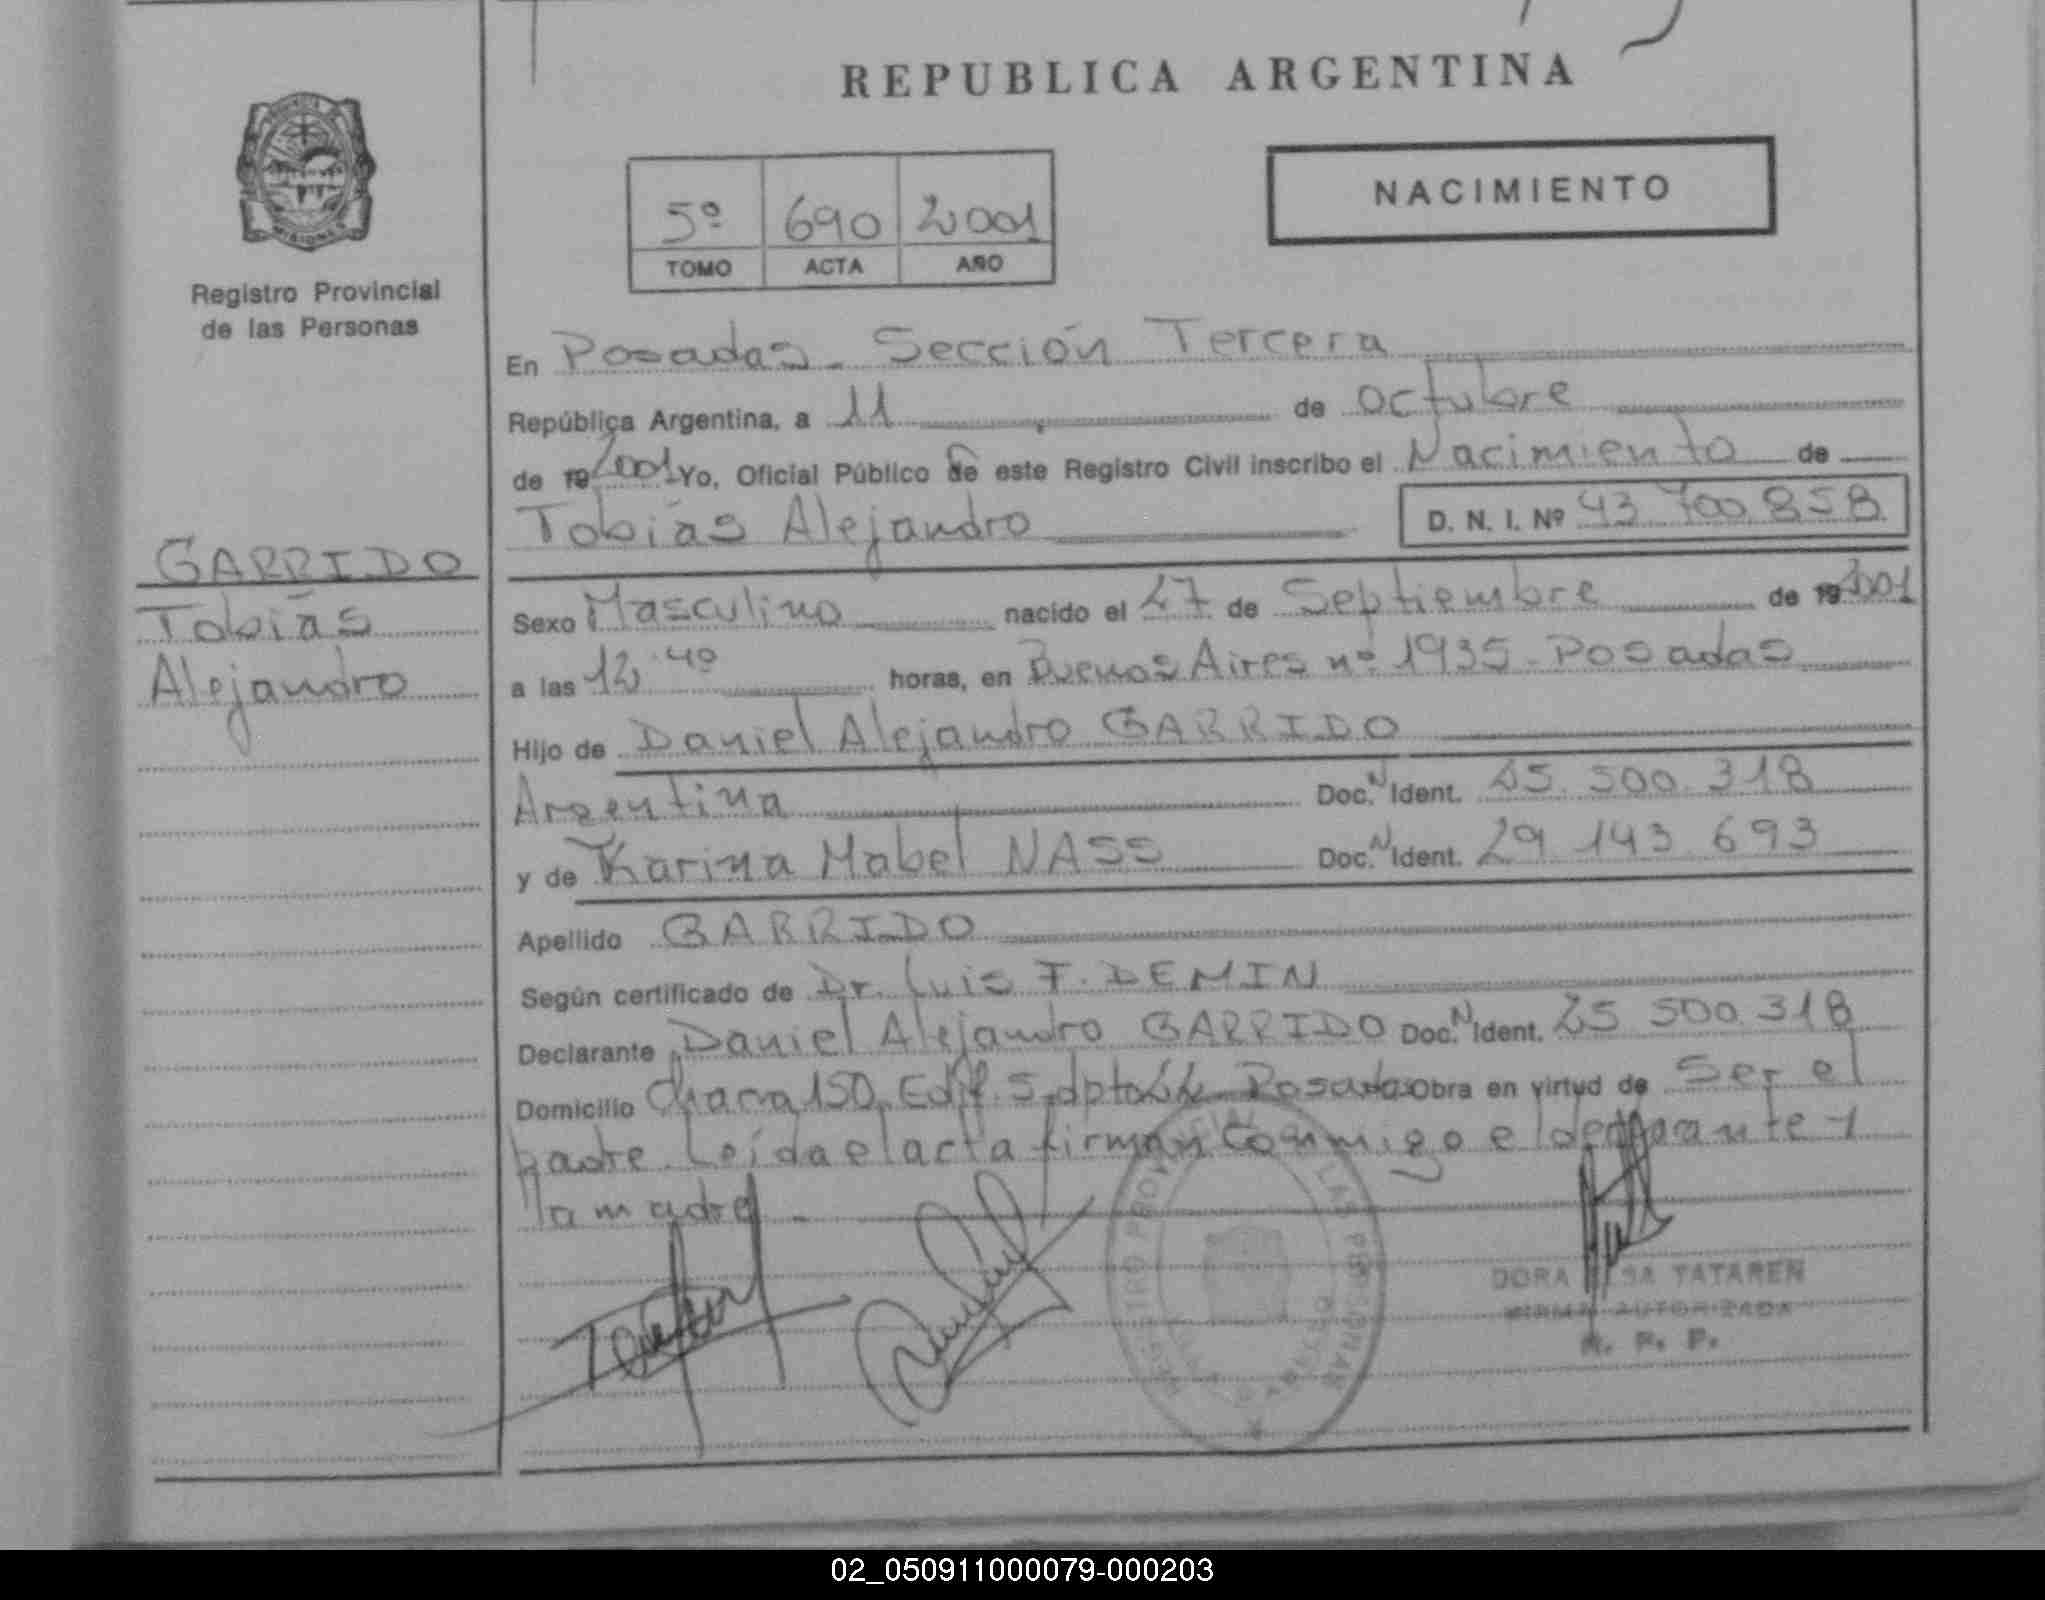 REPUBLICA ARGENTINA
PROVINCIA DE MISIONES
Registro Provincial
de las Personas
NACIMIENTO
5º 690 2001
TOMO ACTA AÑO
En Posadas - Sección Tercera
República Argentina, a 11 de octubre
de 19 2001 Yo, Oficial Público de este Registro Civil inscribo el Nacimiento de
Tobías Alejandro D. N. I. Nº 43 700 858
GARRIDO
Tobías
Alejandro
Sexo Masculino nacido el 27 de Septiembre de 19 2001
a las 12.40 horas, en Buenos Aires nº 1935 - Posadas
Hijo de Daniel Alejandro GARRIDO
Argentina Doc. N Ident. 25.500.318
y de Karina Mabel NASS Doc. N Ident. 29 143 693
Apellido GARRIDO
Según certificado de Dr. Luis F. DEMIN
Declarante Daniel Alejandro GARRIDO Doc. N Ident. 25 500.318
Domicilio Chacra 150, Edif. 5, dpto Posadas Obra en virtud de Ser el
padre. Leída el acta firman conmigo el declarante y
la madre. -
REGISTRO PROVINCIAL DE LAS PERSONAS
DORA TATAREN
FIRMA AUTORIZADA
R. P. P.
02_050911000079-000203